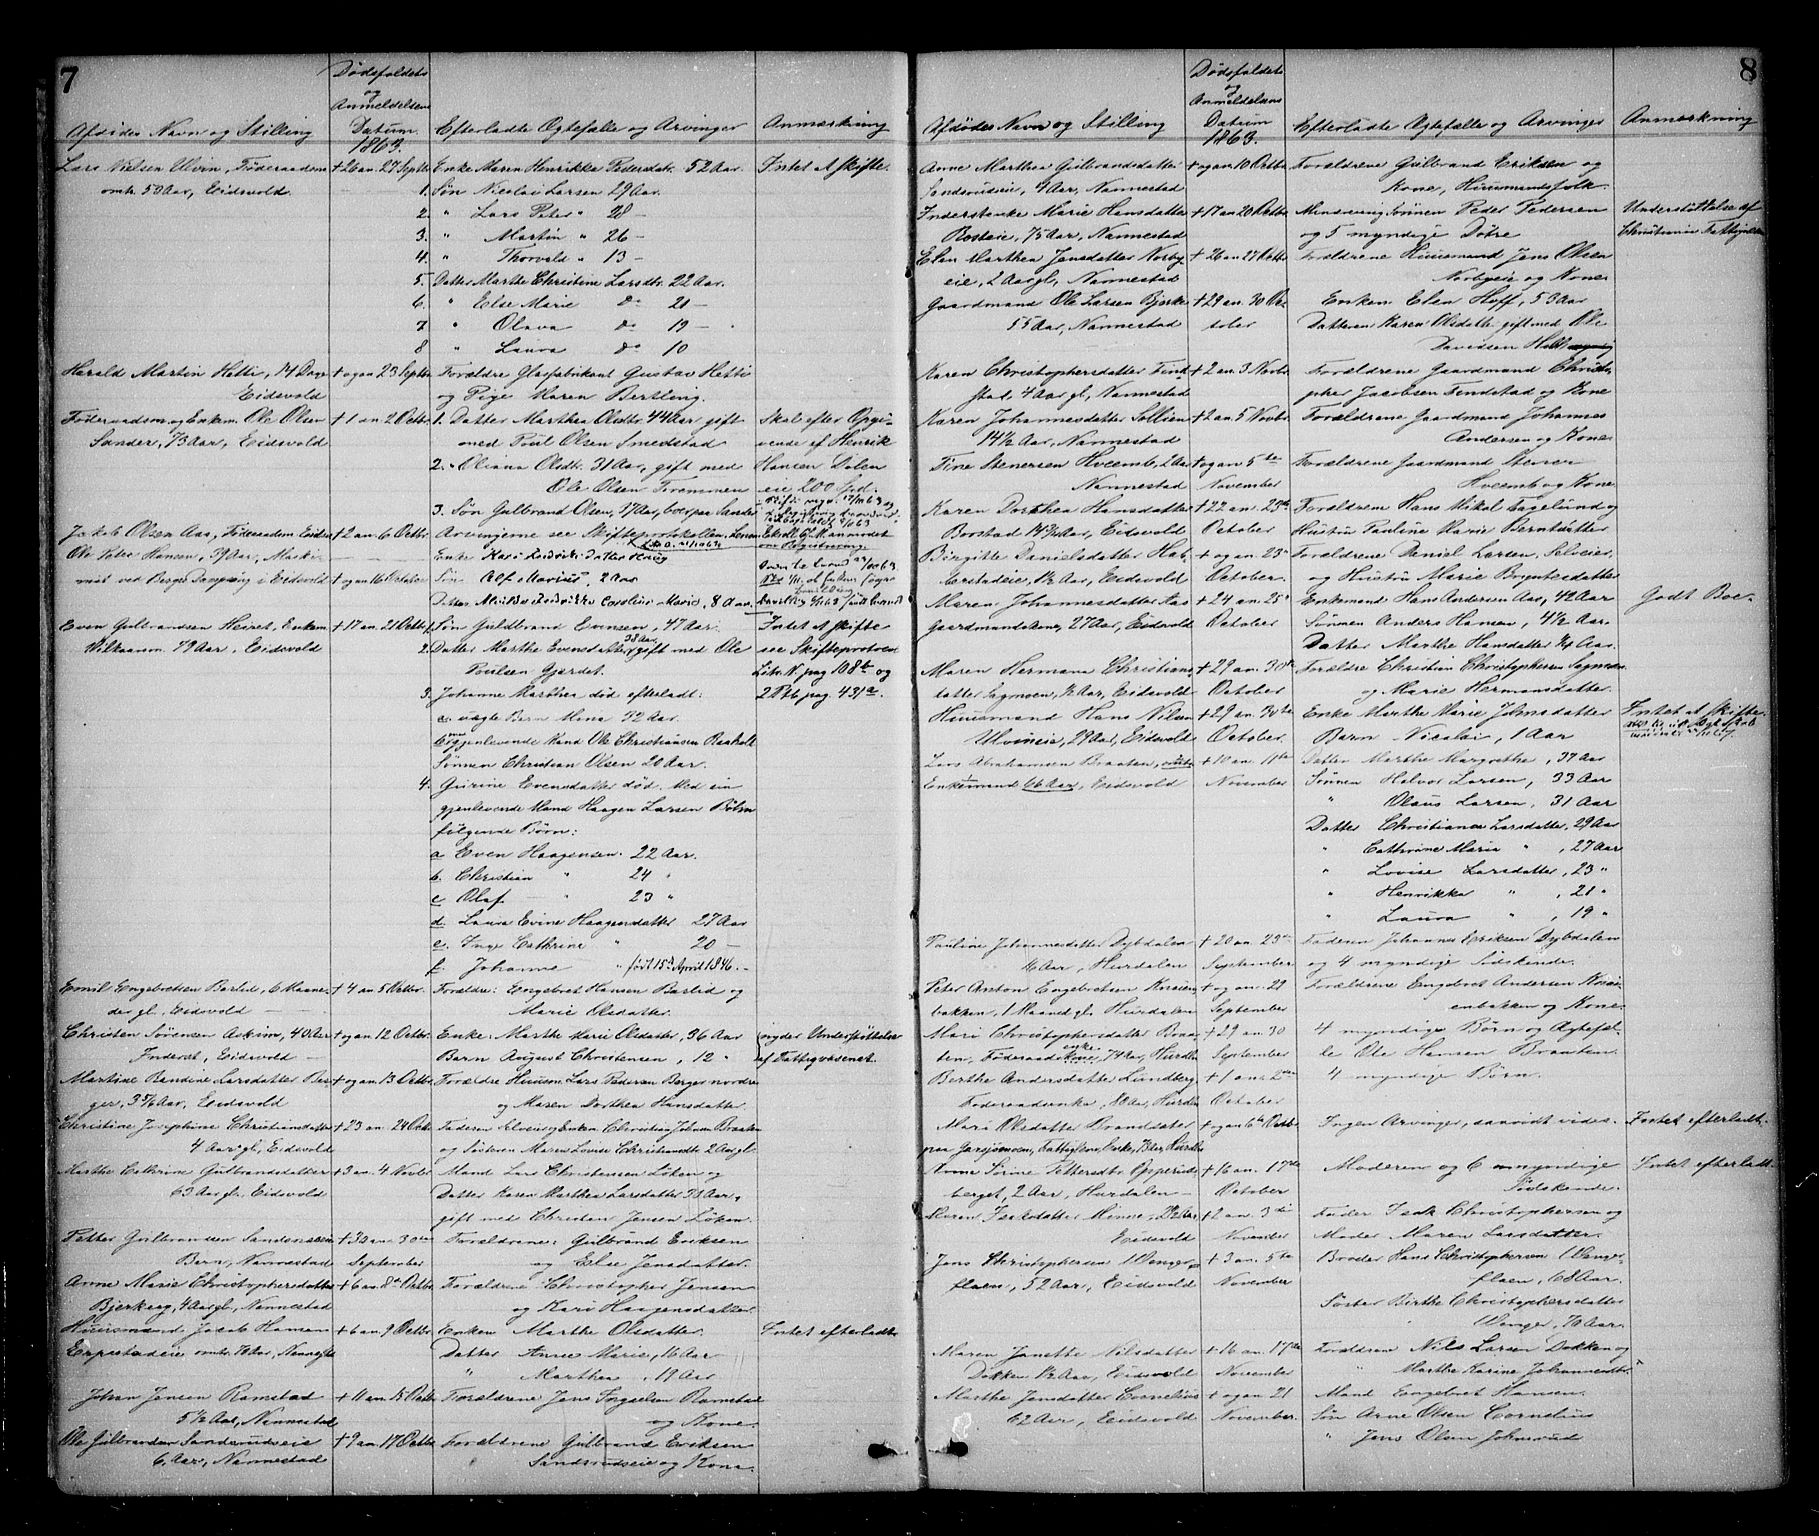 7
Dødsfaldets
og
Anmeldelsens
Afdødes Navn og Stilling Datum Efterladte Ægtefælle og Arvinger Anmærkning
1863.
Lars Nielsen Ulvin, Føderaadsm †26 an. 27 Septbr Enke Maren Henrikka Pedersdtr. 52 Aar. Intet at skifte.
omtr. 50 Aar, Eidsvold. 1. Søn Nicolai Larsen 29 Aar.
2. " Lars Peter " 28 —
3. " Martin " 26 —
4. " Thorvald " 13 —
5. Datter Marthe Christine Larsdtr. 22 Aar.
6. " Else Marie do 21 —
7 " Olava do 19 —
8 " Laura do 10
Harald Martin Hetti, 14 Dage † og an 23 Septbr. Forældre Glasfabrikant Gustav Hetti
Eidsvold og Pige Karen Bertling.
Føderaadsm. og Enkem. Ole Olsen †1 an 2 Octbr. 1. Datter Marthea Olsdtr. 44 Aar gift Skal efter Opgi-
Sander, 73 Aar, Eidsvold med Poul Olsen Smedstad vende af Henrik
2. " Oliana Olsdtr. 31 Aar, gift med Hansen Dølen
Ole Olsen Tremmen eie 200 Spd.
3. Søn Gulbrand Olsen, 17 Aar, boer paa Sander
Jakob Olsen Aas, Føderaadsm. Eidsv. †2 an 6 Octbr Arvingerne see Skifteprotokollen.
Ole Peter Hansen, Aar, Maski- Enke Kari Lovise Datter
nist ved Berger Dampsag i Eidsvold † og an 16 October Søn Alf Mavius, 2 Aar
Datter Caroline Marie, 8 Aar.
Even Gulbrandsen Heiret, Enkem. †17 an. 21 Octbr. 1. Søn Guldbrand Evensen, 47 Aar. Intet at skifte
79 Aar, Eidsvold 2. Datter Marthe Evensdatter, 38 Aar, gift med Ole see Skifteprotocol
Poulsen Gjerdet. Litr. N. pag 108b og
3. Johanne Marthea død efterladt: 2 Ptk pag. 431a.
a. uægte Barn Mina 32 Aar.
b. og gjenlevende Mand Ole Christiansen Raaholt
Sønnen Christian Olsen 20 Aar.
4. Gurine Evensdatter død. Med sin
gjenlevende Mand Haagen Larsen Bøhn
følgende Børn:
a Even Haagensen. 22 Aar.
b. Christian " 24 "
c Olaf — " 23 "
d Laura Evine Haagensdatter 27 Aar
e. Inge Cathrine " 20 —
f. Johanne " født 15de April 1846.
Emil Engebretsen Barlid, 6 Maane- †4 an 5 Octbr. Forældre: Engebret Hansen Barlid og
der gl., Eidsvold — Marie Olsdatter.
Christen Sørensen Askim, 40 Aar † og an 12 Octbr. Enke Marthe Marie Olsdatter, 36 Aar nyder Understøttelse
Inderst, Eidsvold — Barn August Christensen, 12 " af Fattigvæsenet.
Martine Randine Larsdatter Ber- † og an. 13 Octbr. Forældre Huusm. Lars Pedersen Berger nordre
ger, 3 5/6 Aar, Eidsvold og Maren Dorthea Hansdatter.
Christine Josephine Christiansdatter †23 an. 24 Octbr. Faderen Selveier og Enkem. Christian Johnsen Braaten
4 Aar gl, Eidsvold og Søsteren Maren Lovise Christiansdtr. 2 Aar gl.
Marthe Cathrine Gulbrandsdatter †3 an. 4 Novbr. Mand Lars Christensen Løken og
63 Aar gl. Eidsvold Datter Karen Marthea Larsdatter 33 Aar,
gift med Christian Jensen Løken.
Petter Gulbrandsen Sandsrudeie †30 an. 30te Forældrene: Gulbrand Eriksen
Barn, Nannestad September og Else Jensdatter.
Anne Marie Christophersdatter †6 an 8de Octbr Forældrene Christopher Jensen
Bjerkeeg, 4 Aar gl, Nannestad og Kari Haagensdatter
Huusmand Jacob Hansen †6 an. 9 Octbr. Enken Marthe Olsdatter. Intet efterladt.
omtr. 70 Aar, Nannestad Datter Anne Marie, 16 Aar
" Marthea, 19 Aar
Johan Jensen Ramstad †11 an. 15 Octbr Forældrene Jens Ingvalsen Ramstad
5 1/2 Aar, Nannestad og Kone.
Ole Gulbrandsen Sandsrudeie †9 an. 17 Octbr. Forældrene Gulbrand Eriksen
6 Aar, Nannestad Sandsrudeie og Kone
8
Dødsfaldets
og
Anmeldelsens
Afdødes Navn og Stilling Datum Efterladte Ægtefælle og Arvinger Anmærkning
1863.
Anne Marthea Gulbrandsdatter † og an 10 Octbr Forældrene Gulbrand Eriksen og
Sandsrudeie, 4 Aar, Nannestad Kone, Huusmandsfolk.
Inderstenke Marie Hansdatter †17 an 20 Octbr Mindreaarig Sønnen Peder Pedersen Understøttelse af
Bosteie, 75 Aar, Nannestad og 5 myndige Døtre Christiania Fattigvæsen
Elen Marthea Jensdatter Norby- †26 an 27 Octbr Forældrene Huusmand Jens Olsen
eie, 2 Aar gl, Nannestad Norbyeie og Kone
Gaardmand Ole Larsen Bjerke †29 an. 30 Oc- Enken Elen Hoff, 50 Aar
55 Aar, Nannestad tober Datteren Karen Olsdatter gift med Ole
Davidsen Holt
Karen Christophersdatter Find- †2 an. 3 Novbr. Forældrene Gaardmand Christo-
stad, 4 Aar gl, Nannestad pher Jacobsen Findstad og Kone
Karen Johannesdatter Sollien †2 an 5 Novbr Forældrene Gaardmand Johannes
14 1/2 Aar, Nannestad Andersen og Kone
Tine Stenersen Hveemb, 2 Aar † og an 5te Forældrene Gaardmand Stener
Nannestad November Hveemb og Kone
Karen Dorthea Hansdatter †22 an. 25de Forældrene Hans Mikel Fagelund og
Borstad 14 3/4 Aar, Eidsvold October Hustru Pauline Marie Berntsdatter
Birgitte Danielsdatter Hab- † og an 23de Forældrene Daniel Larsen, Selveier,
berstadeie, 1 1/2 Aar, Eidsvold October. og Hustru Marie Brynthesdatter
Maren Johannesdatter Aas †24 an. 25de Enkemand Hans Andersen Aas, 42 Aar Godt Boe.
Gaardmandskone, 27 Aar, Eidsvold October Sønnen Anders Hansen, 4 1/2 Aar.
Datter Marthe Hansdatter 1/4 Aar.
Maren Hermana Christians- †29 an. 30te Forældre Christian Christophersen Sagmoen
datter Sagmoen, 1/2 Aar, Eidsvold October og Marie Hermansdatter.
Huusmand Hans Nilsen †29 an. 30te Enke Marthe Marie Johnsdatter Intet at skifte.
Ulvineie, 29 Aar, Eidsvold October. Barn Nicolai, 1 Aar
Lars Abrahamsen Braaten, †10 an. 11te Datter Marthe Margrethe, 37 Aar
Enkemand 66 Aar, Eidsvold November Sønnen Halvor Larsen, 33 Aar
" Olaus Larsen, 31 Aar
Datter Christiana Larsdatter, 29 Aar
" Cathrine Maria " , 27 Aar
" Lovise Larsdatter, 23 "
" Henrikka " , 21 "
" Laura " , 19 "
Pauline Johannesdatter Dybdalen †20 an. 23de Faderen Johannes Eriksen Dybdalen
Aar, Hurdalen September og 4 myndige Sødskende.
Peter Anton Engebretsen † og an. 29 Forældrene Engebret Andersen
bakken, 1 Maaned gl. Hurdalen September enbakken og Kone.
Mari Christophersdatter Braa- †29 an. 30 4 myndige Børn og Ægtefæl-
ten, Føderaadskone, enke 74 Aar, Hurdal September le Ole Hansen Braaten.
Berthe Andersdatter Lundberg †1 an 2den 4 myndige Børn.
Føderaadsenke, 80 Aar, Hurdalen October
Mari Olsdatter Strandseter † og an 6te Octbr Ingen Arvinger, saavidt vides. Intet efterladt.
paa Garsjømoen, Fattiglem, Enke, Hurdalen
Anne Sørine Pettersdtr. Gipperuds- †16 an. 17de Moderen og 6 umyndige Intet efterladt
berget, 2 Aar, Hurdalen October Sødskende.
Maren Isaksdatter Minne, 2 1/2 Aar †2 an 3die Fader Isak Christophersen og
Eidsvold November Moder Maren Larsdatter.
Jens Christophersen Wenger- †3 an. 5te Broder Hans Christophersen Wenger-
flaen, 52 Aar, Eidsvold November flaen, 68 Aar.
Søster Birthe Christophersdatter
Wenger, 70 Aar.
Maren Janette Nilsdatter †16 an. 17de Forældrene Nils Larsen Dokken og
Dokken 1/2 Aar, Eidsvold November " Marthe Karine Johannesdtr.
Marthe Jensdatter Cornelius † og an 21 Mand Engebret Hansen.
62 Aar, Eidsvold November. Søn Arne Olsen Cornelius
" Jens Olsen Johnsrud